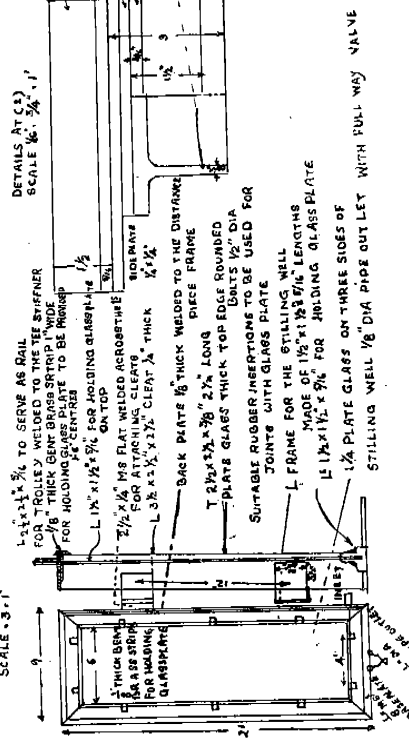 SCALE = 3 : 1'
9
6
2'
4"
1/8" THICK BENT
BRASS STRIPS
FOR HOLDING
GLASSPLATE
L 2½" x 2½" x 5/16 TO SERVE AS RAIL
FOR TROLLEY WELDED TO THE TEE STIFFNER
1/8" THICK BENT BRASS SRTRIP 1" WIDE
FOR HOLDING GLASS PLATE TO BE PROVIDED
CENTRES
L 1½" x 1½" 5/16 FOR HOLDING GLASSPLATE
ON TOP
2½ x ¼ MS FLAT WELDED ACROSS THE
FOR ATTACHING CLEATS
L 3½ x 2½" x 2½" CLEAT ¼" THICK
BACK PLATE 1/8" THICK WELDED TO THE DISTANCE
PIECE FRAME
T 2½ x 2½ x 3/8" 2¼ LONG
PLATE GLASS THICK TOP EDGE ROUNDED
BOLTS ½" DIA
SUITABLE RUBBER INSERTIONS TO BE USED FOR
JOINTS WITH GLASS PLATE
L FRAME FOR THE STILLING WELL
MADE OF 1½" x 1½" 5/16" LENGTHS
LS 1½ x 1½ x 5/16" FOR HOLDING GLASS PLATE
¼ PLATE GLASS ON THREE SIDES OF
STILLING WELL 1/8" DIA PIPE OUT LET WITH FULL WAY VALVE
INLET
DETAILS AT (2)
SCALE
1½
SIDE PLATE
¼ x ¼"
3
1½"